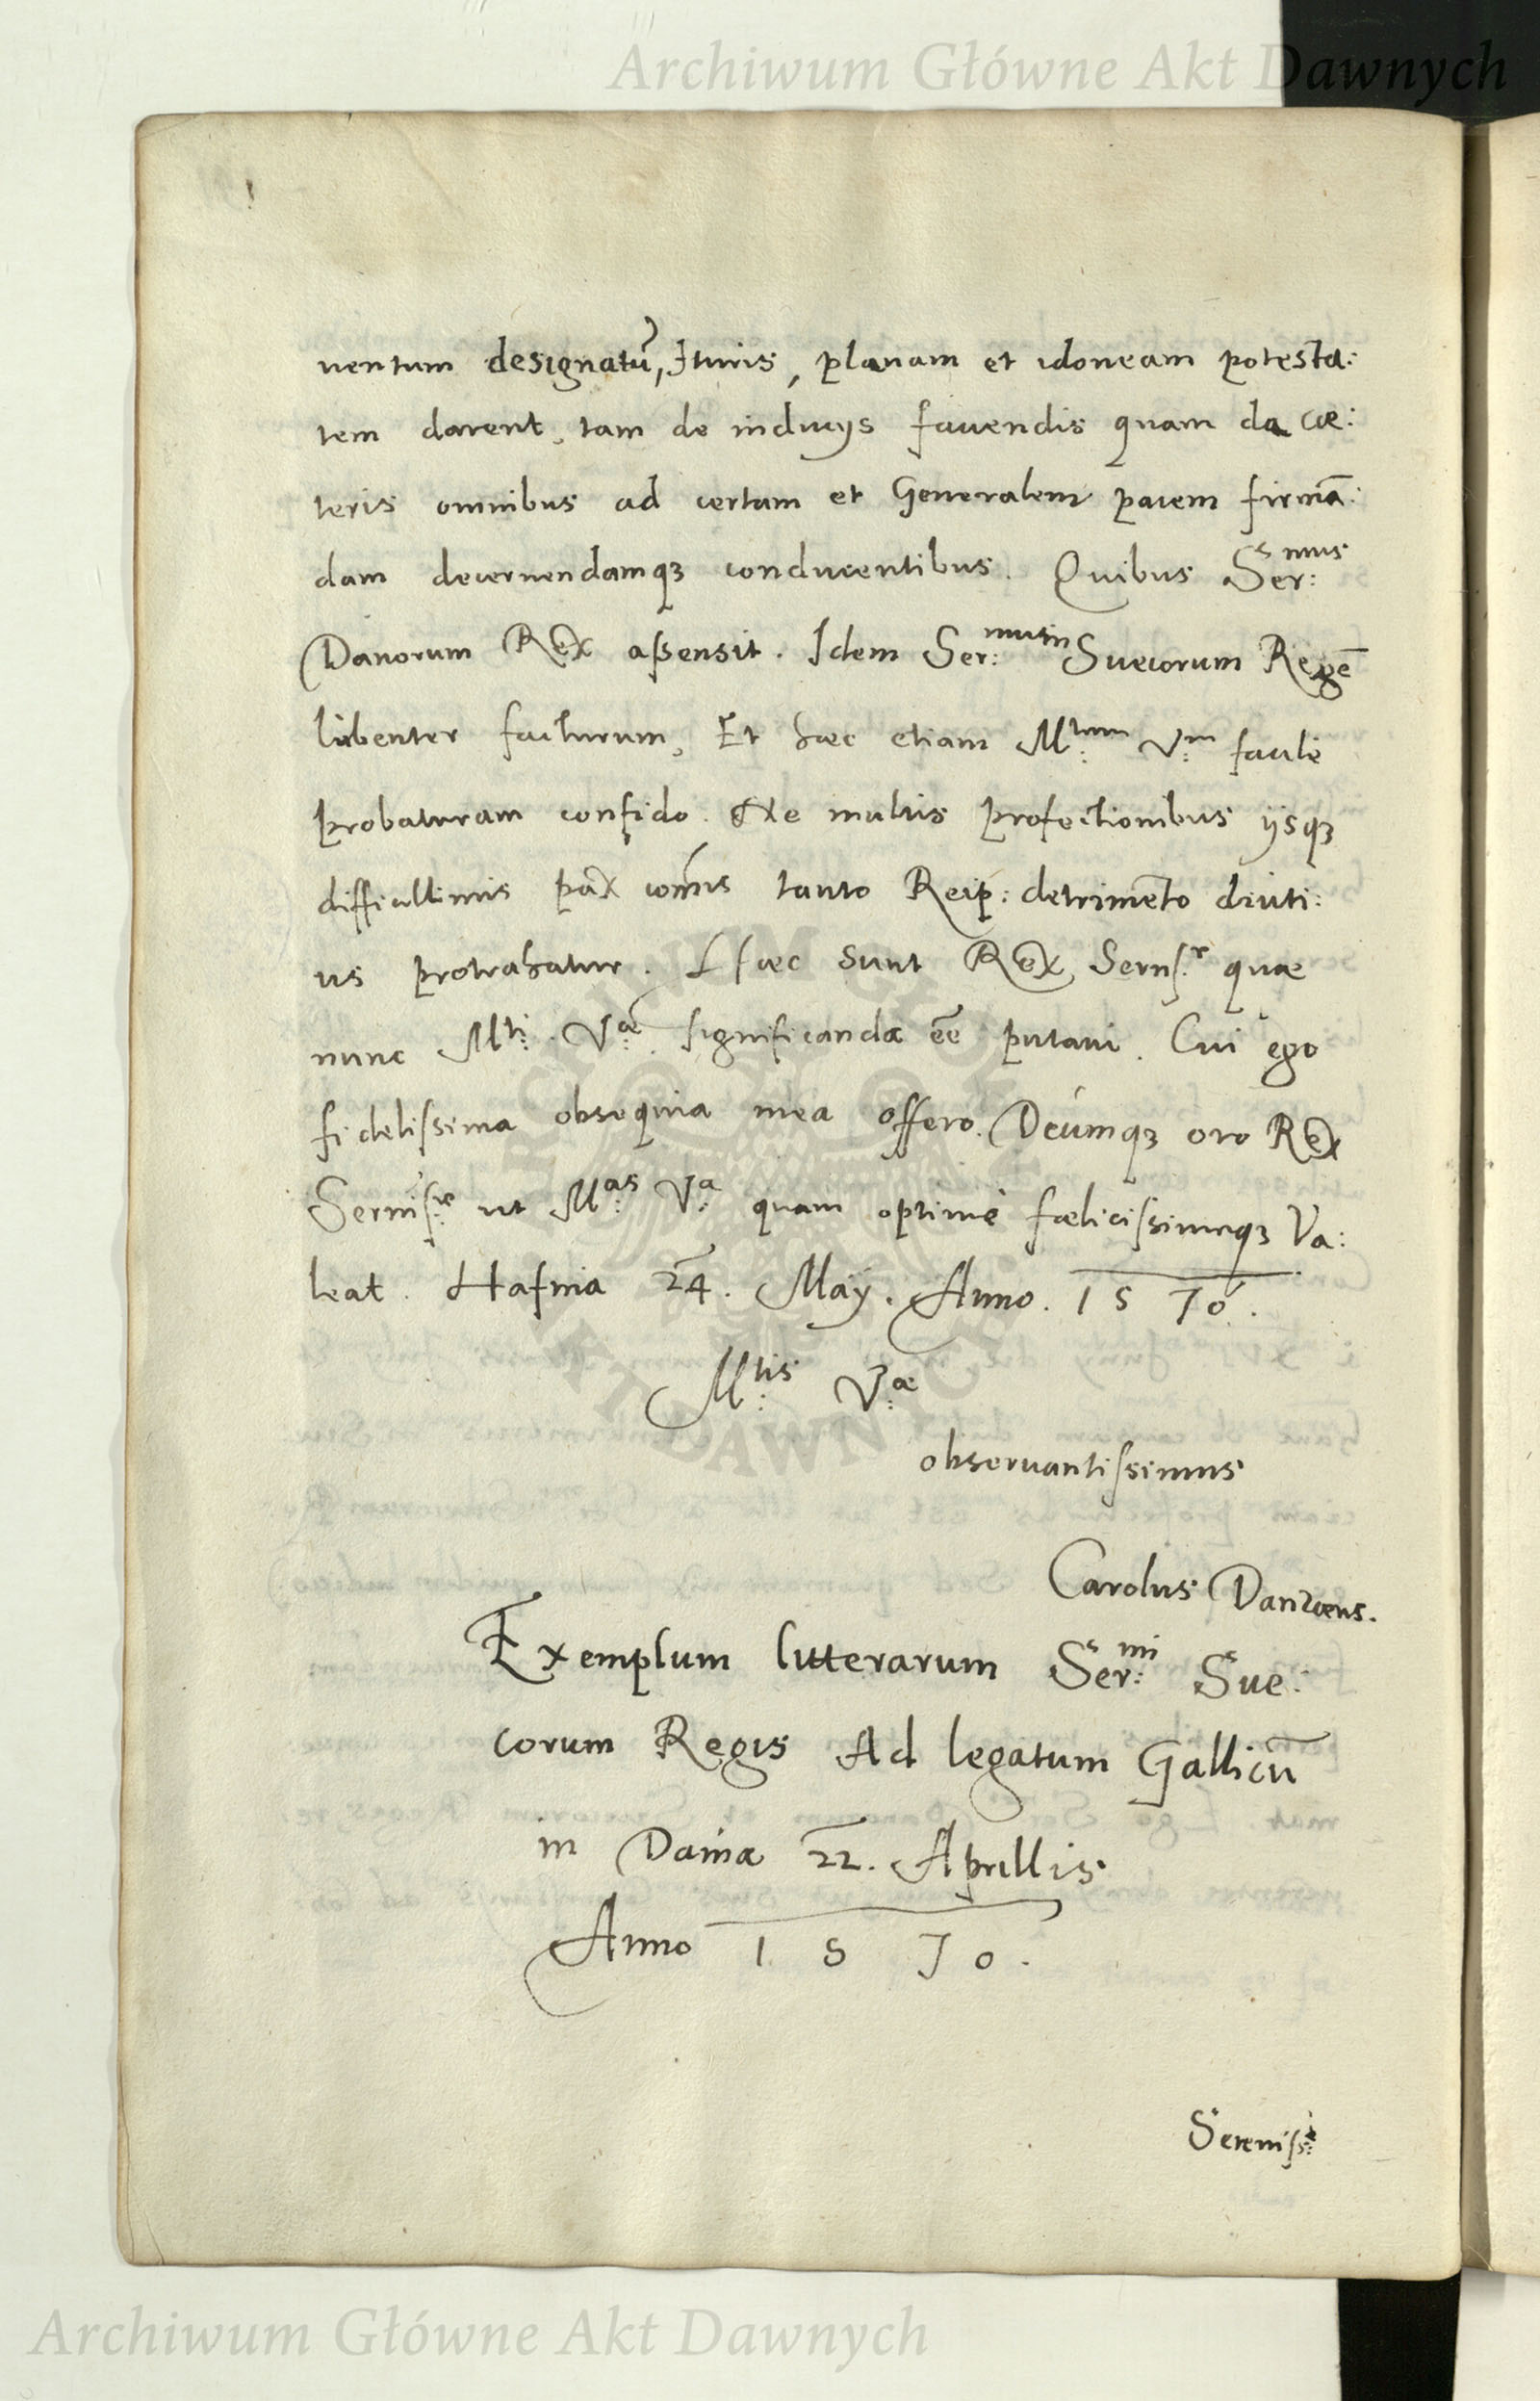 Archiwum Główne Akt Dawnych
uentum designatū, Ituris, planam et idoneam potesta:
tem darent, tam de inducijs fauendis quam da cæ:
teris omnibus ad certam et Generalem pacem firmā:
dam decernendamqȝ conducentibus. Quibus Ser:mus
Danorum Rex assensit. Idem Ser:mum Suecorum Regē
libenter facturum, Et hæc etiam M:tem V:m facile
probaturam confido. Ne multis profectionibus ijsqȝ
difficillimis pax com̄is tanto Reip: detrimēto diuti:
us protrahatur. Hæc sunt Rex Serniss.e quæ
nunc M:ti V:æ significanda eē̄ putaui. Cui ego
fidelissima obsequia mea offero. Deumqȝ oro Rex
Serniss:e ut M:as V:a quam optime fœlicissimeqȝ Va:
leat. Hafnia 24. Maÿ. Anno. 1570.
M:tis V:æ
obseruantissimus
Carolus Danzæus.
Exemplum litterarum Ser:mi Sue:
corum Regis Ad legatum Gallicū
in Dania 22. Aprillis
Anno 1570.
Sereniss:e
ARCHIWUM GŁÓWNE AKT DAWNYCH
Archiwum Główne Akt Dawnych